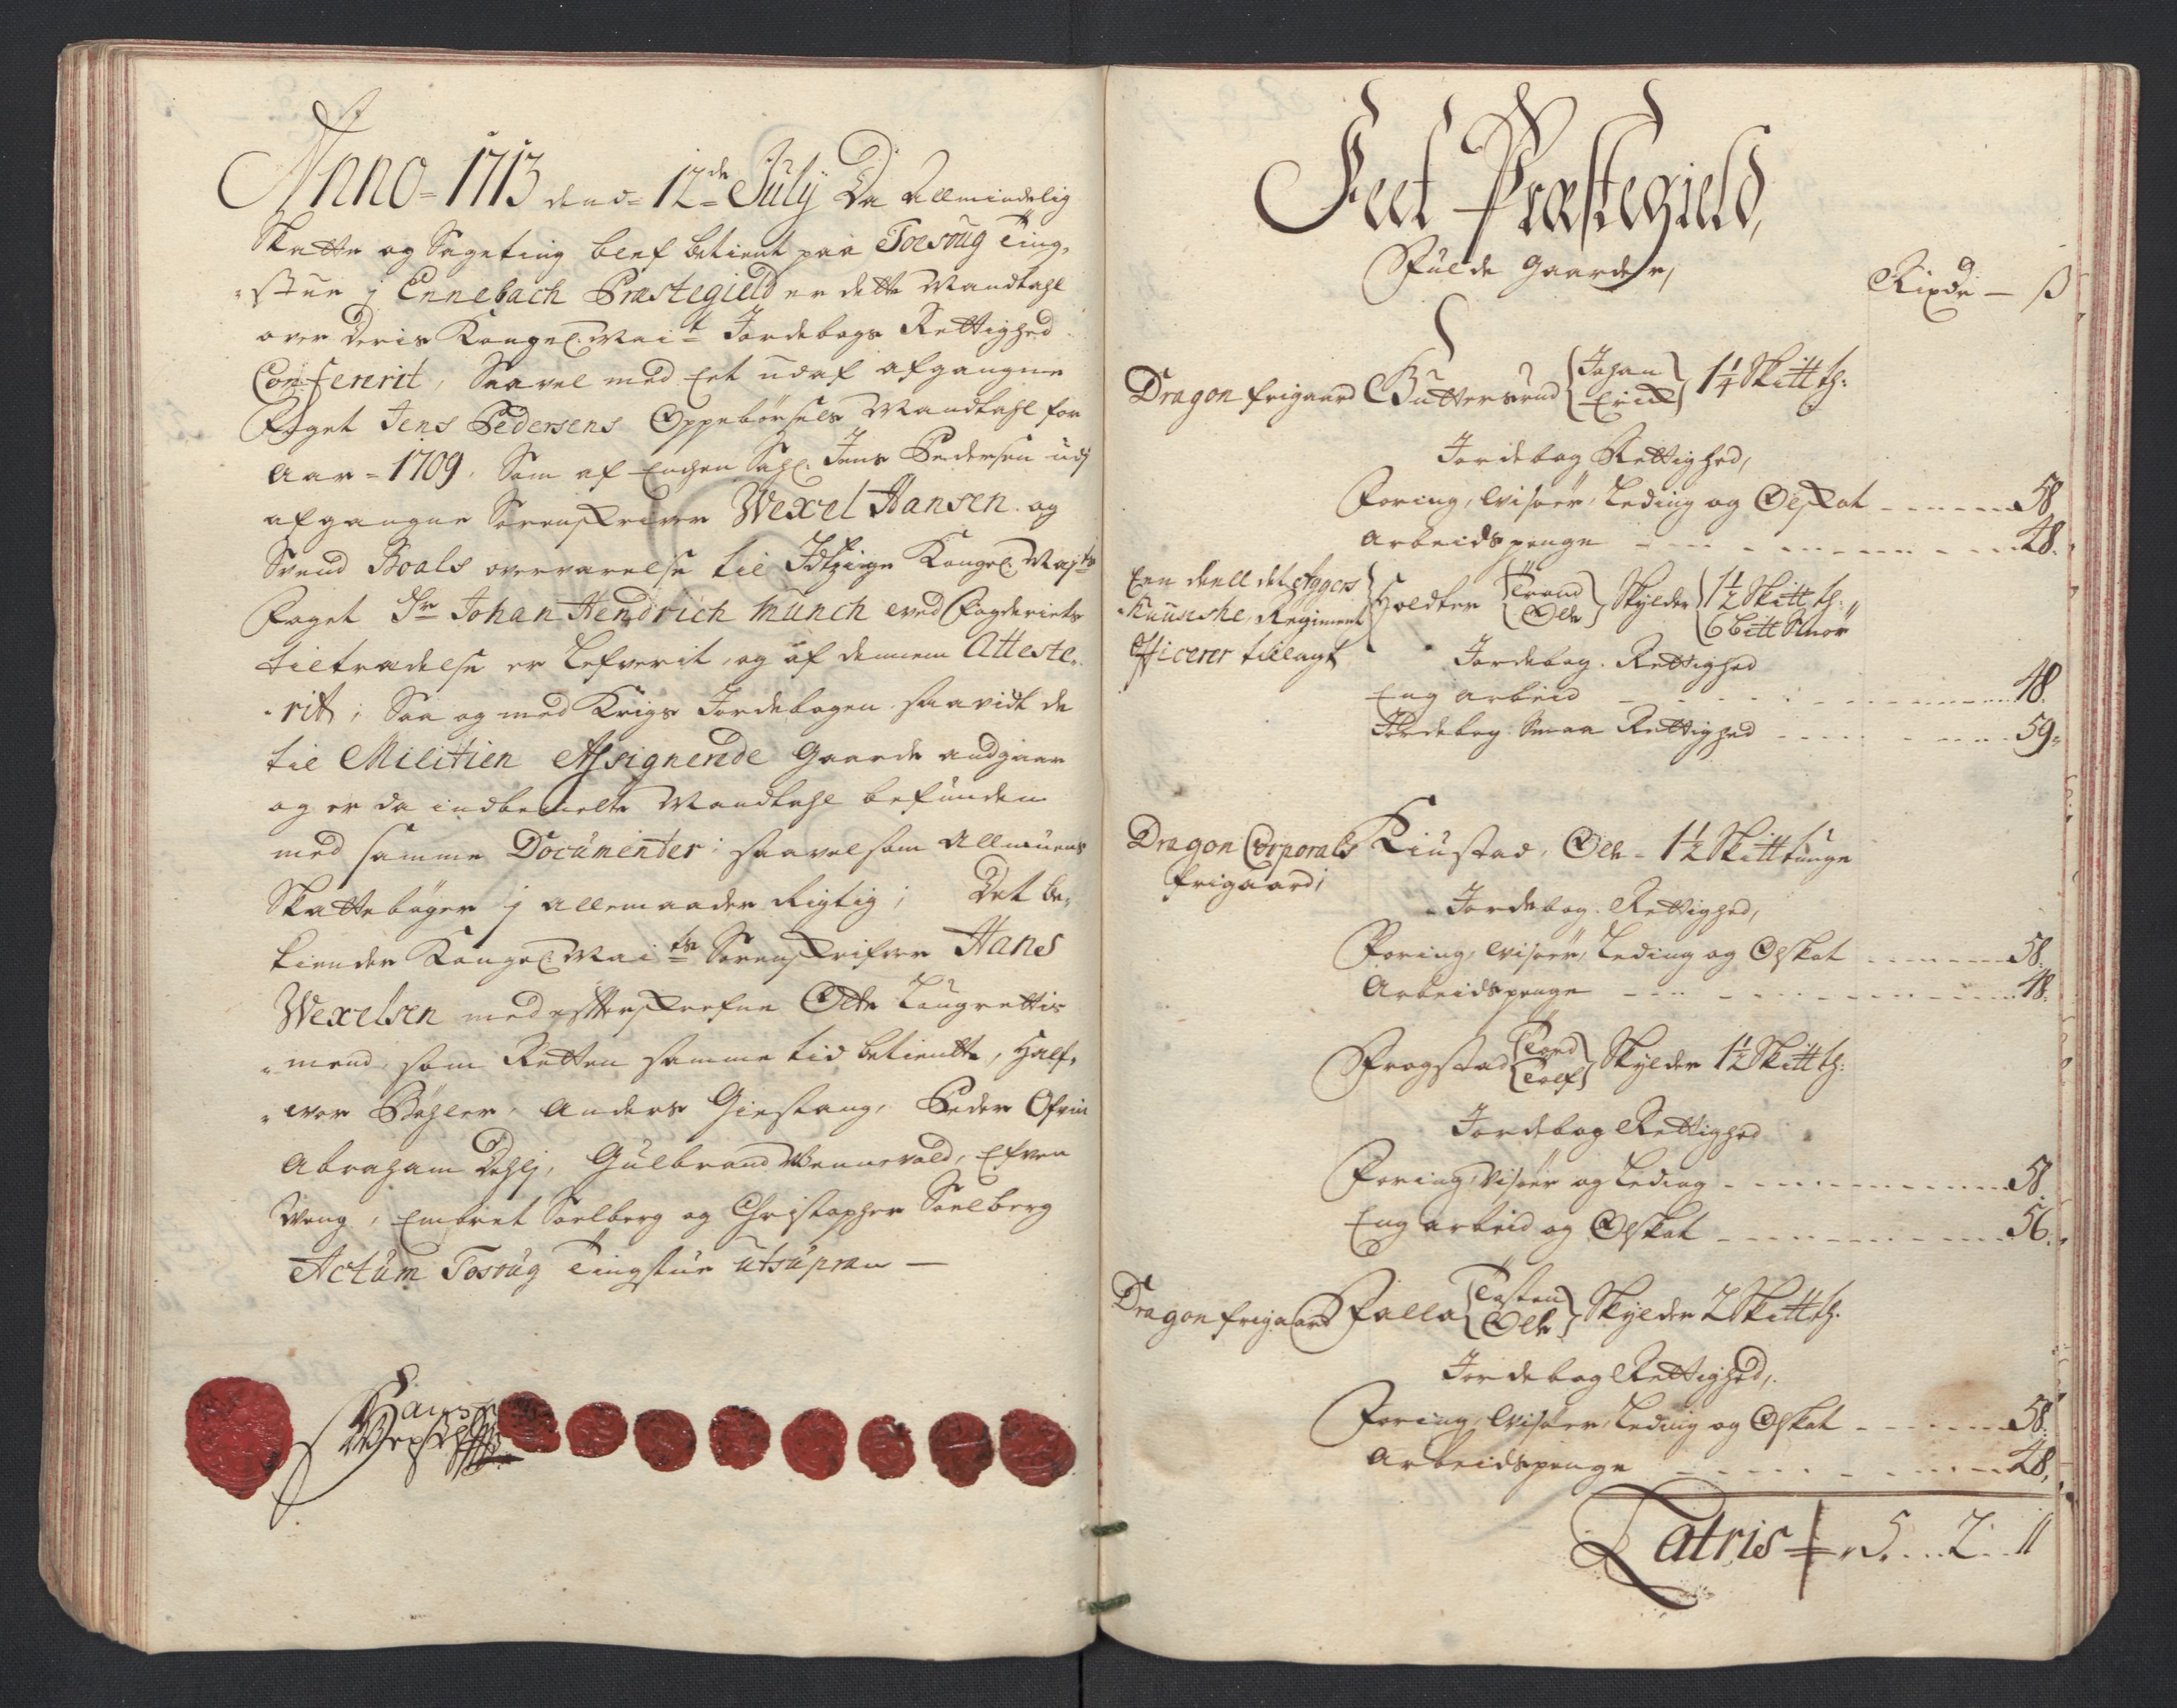 Anno = 1713 dend = 12de July Da Allmindelig
Skatte og Sageting blef betient paa Toesoug Ting,
stue j Ennebach Præstegield er dette Mandtahl
over deris Kongel: Mait Jordebogs Rettighed
Confererit, Saavel med Eet udaf afgangne
Foget Jens Pedersens Oppebørsels Mandtahl for
Aar = 1709. Som af Enchen Sahl: Jens Pedersen udj
afgangne Sorenskriver Wexel Hansen og
Svend Boals overværelse til Itzige Kongel: Majts
Foget Sr Johan Hendrich Munch ved Fogderiets
tiltrædelse er Lefverit, og af dennem Atteste„
„rit; Saa og med Krigs Jordebogen saavidt de
til Militien Assignerede Gaarde andgaar
og er da indbemelte Mandtahl befunden
med samme Documenter; saavelsom Allmuens
Skattebøger j allemaader Rigtig; Det be„
kiender Kongel: Maits Sorenskrifver Hans
Wexelsen med efterskrefne Otte Laugrettis
„mend, som Retten samme tid betiente, Half„
„wor Bøhler, Anders Giestang, Peder Ofrin
Abraham Dahlj, Gulbrand Wennevold, Efven
Weng, Embret Soelberg og Christopher Soelberg
Actum Tosoug Tingstue utsupra —
Hans
Wexelsen
Feet Præstegield,
Fulde Gaarder,
Rixdr — ß
Dragon frigaard Guttersrud { Johan Erich } 1 1/4 Skitt th:
Jordebog Rettighed,
Foring, Wisøer, Leding og Olskat 58
Arbeidspenge 48.
Een deell det Aggers
Huusiske Regiments
Officerer tillagt
Holdter { Trond Ole } Skylder { 1 1/2 Skitt th: 6 bitt Smør
Jordebog. Rettighed
Eng arbeid 48
Jordebog: Smaa Rettighed 59„
Dragon Corporals
frigaard;
Kiustad, Ole – 1 1/2 Skittunge
Jordebog. Rettighed,
Foring, Wisøer, Leding og Olskat 58.
Arbeidspenge 48.
Frogstad { Tord Tolf } Skylder 1 1/2 Skitt th:
Jordebog Rettighed
Foring Wisøer og Leding 58
Eng arbeid og Olskat 56.
Dragon frigaard Falla { Tosten Ole } Skylder 2 Skitt th:
Jordebog Rettighed,
Foring, Wisøer, Leding og Olskat 58:
Arbeidspenge 48,
Latris 5. 2. 11